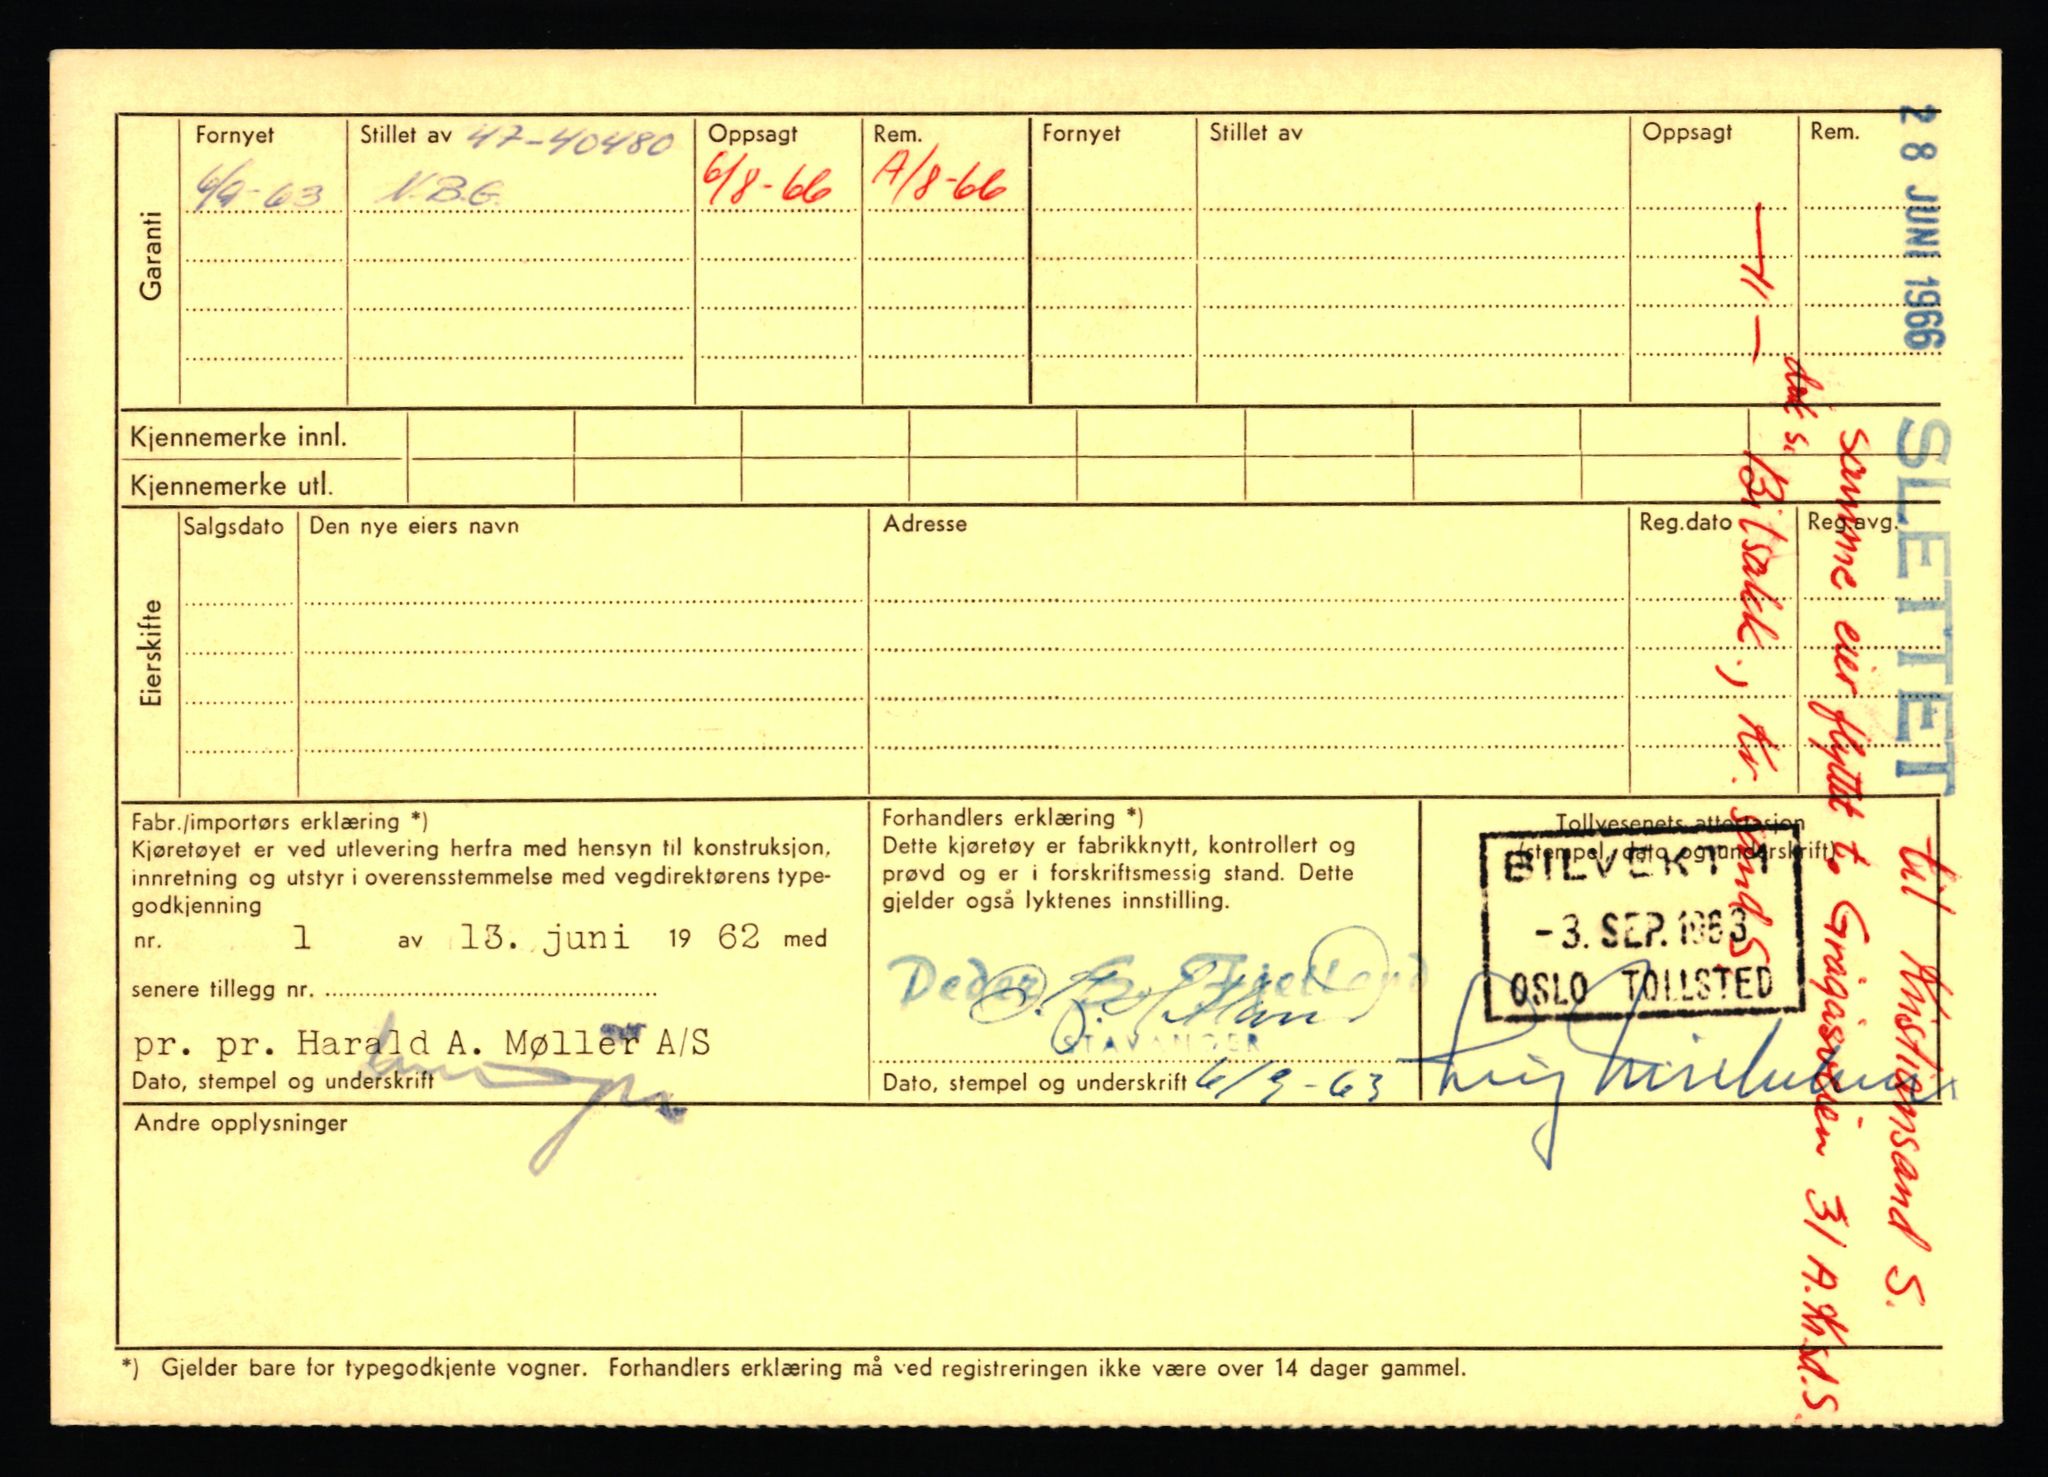 Garanti
Fornyet
Stillet av 47-40480
Oppsagt
Rem.
Fornyet
Stillet av
Oppsagt
Rem.
6/9-63
N.B.G.
6/8-66
A/8-66
Kjennemerke innl.
Kjennemerke utl.
Eierskifte
Salgsdato
Den nye eiers navn
Adresse
Reg.dato
Reg.avg.
Fabr./importørs erklæring *)
Kjøretøyet er ved utlevering herfra med hensyn til konstruksjon,
innretning og utstyr i overensstemmelse med vegdirektørens type-
godkjenning
nr. 1 av 13. juni 19 62 med
senere tillegg nr.
pr. pr. Harald A. Møller A/S
Dato, stempel og underskrift
Forhandlers erklæring *)
Dette kjøretøy er fabrikknytt, kontrollert og
prøvd og er i forskriftsmessig stand. Dette
gjelder også lyktenes innstilling.
STAVANGER
Dato, stempel og underskrift 6/9-63
Tollvesenets attestasjon
(stempel, dato og underskrift)
BILVEKT 1
-3. SEP. 1963
OSLO TOLLSTED
Andre opplysninger
*) Gjelder bare for typegodkjente vogner. Forhandlers erklæring må ved registreringen ikke være over 14 dager gammel.
28 JUNI 1966 SLETTET
til Kristiansand S.
samme eier flyttet t. Grågåsveien 31 A. Kr.sd.S.
Biltsakk., Kr. sand S.